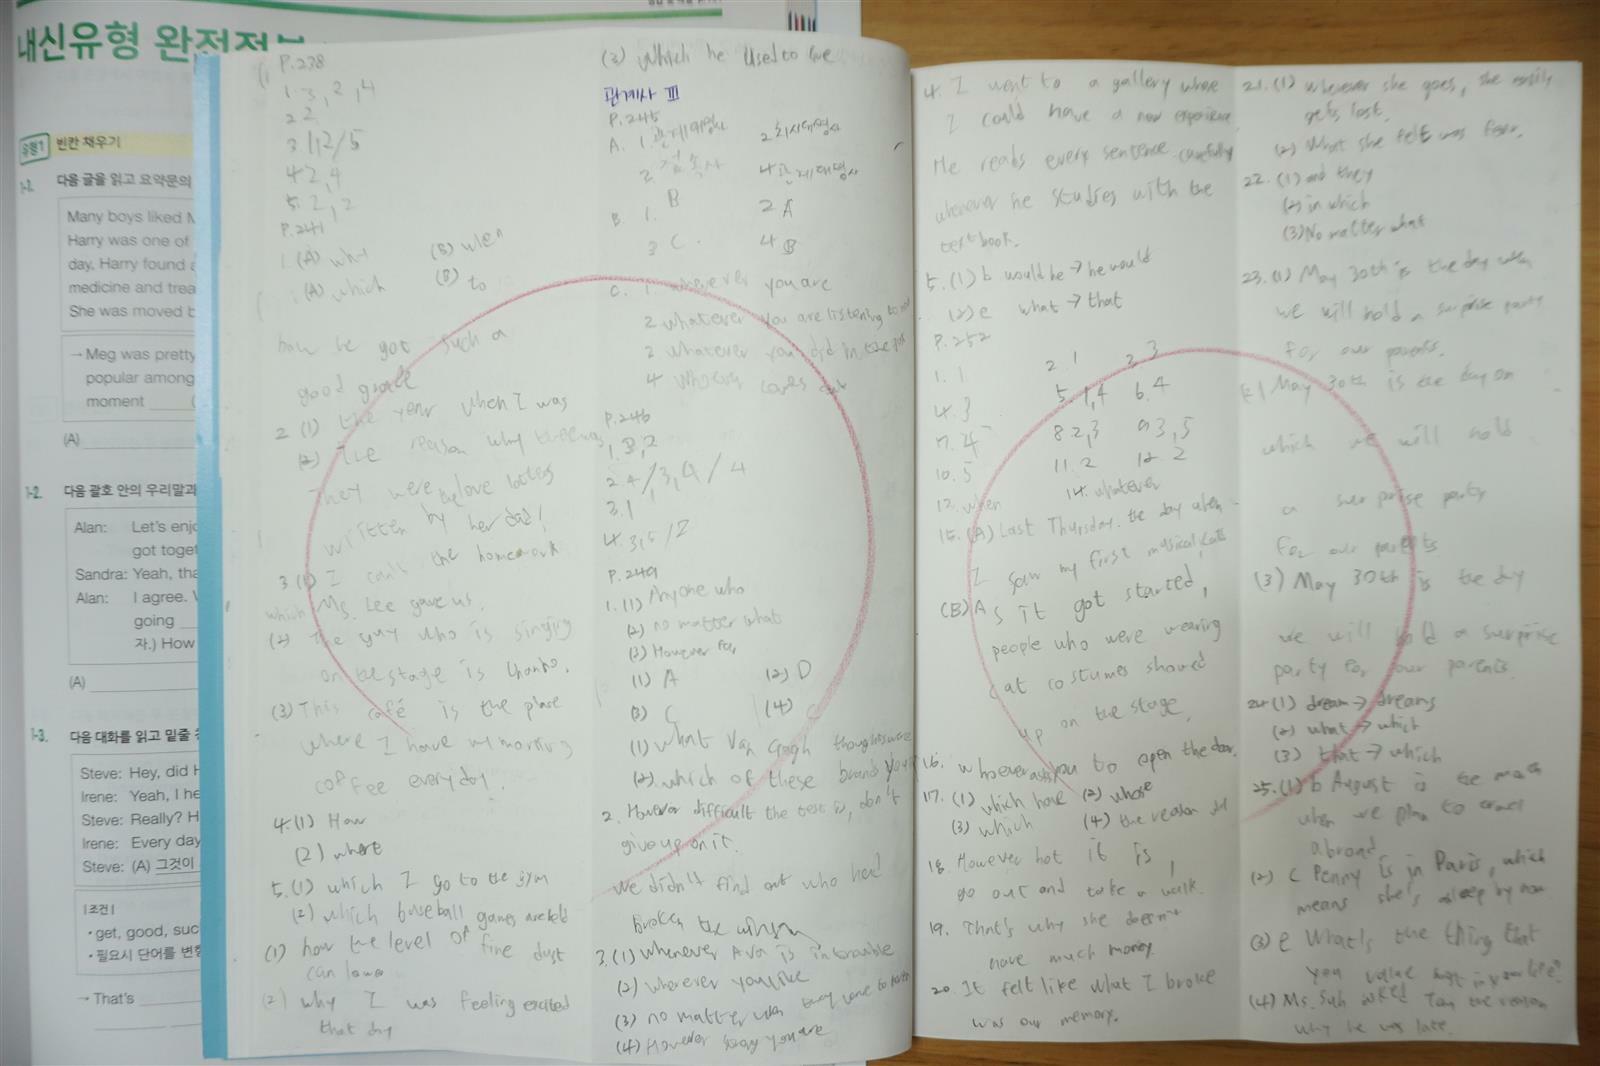 내신유형 완전정복
유형1 빈칸 채우기
1-1. 다음 글을 읽고 요약문의
Many boys liked M
Harry was one of
day, Harry found a
medicine and trea
She was moved b
→ Meg was pretty
popular among
moment
(A)
1-2. 다음 괄호 안의 우리말과
Alan: Let's enjo
got toget
Sandra: Yeah, tha
Alan: I agree. W
going
자.) How
(A)
1-3. 다음 대화를 읽고 밑줄 친
Steve: Hey, did H
Irene: Yeah, I he
Steve: Really? H
Irene: Every day
Steve: (A) 그것이
| 조건 |
• get, good, suc
• 필요시 단어를 변형
→ That's
P.238
1. 3, 2, 4
2 2
3 1, 2/5
4 2, 4
5. 2, 2
P.241
1. (A) what (B) when
(A) which (B) to
how he got such a
good grade
2 (1) the year when I was
(2) The reason why
They were love letters
written by her dad!
3 (1) I can't the homework
which Ms. Lee gave us.
(2) The guy who is singing
on the stage is
(3) This café is the place
where I have my morning
coffee everyday.
4. (1) How
(2) where
5. (1) which I go to the gym
(2) which baseball games are held
(1) how the level of fine dust
can
(2) why I was feeling excited
that day
(3) which he used to live
관계사 III
P.245
A. 1. 관계대명사 2 의문대명사
2 접속사 4 관계대명사
B. 1. B 2 A
3 C. 4 B
C. 1. wherever you are
2 whatever you are listening to
2 whatever you did in the
4 Whoever comes
P.246
1. 3, 2
2. 4/3, 4/4
3. 1
4. 3, 5/2
P.249
1. (1) Anyone who
(2) no matter what
(3) However far
(1) A (2) D
(3) C (4) C
(1) what Van Gogh
(2) which of these brands
2. However difficult the test is, don't
give up on it.
we didn't find out who had
broken the window
3. (1) whenever Ava is in trouble
(2) wherever you like
(3) no matter when they come to
(4) However you are
4. I went to a gallery where
I could have a new experience
He reads every sentence carefully
whenever he studies with the
textbook.
5. (1) b would he → he would
(2) e what → that
P.252
1. 1 2. 1 3
4. 3 5. 1, 4 6. 4
7. 4 8 2, 3 9 3, 5
10. 5 11. 2 12. 2
13. when 14. whatever
15. (A) Last Thursday. the day when
I saw my first musical, Cats
(B) As it got started,
people who were wearing
cat costumes showed
up on the stage.
16. whoever asks you to open the door.
17. (1) which have (2) whose
(3) which (4) the reason
18. However hot it is,
go out and take a walk.
19. That's why she doesn't
have much money.
20. It felt like what I broke
was our memory.
21. (1) wherever she goes, she easily
gets lost.
(2) What she felt was fear.
22. (1) and they
(2) in which
(3) No matter what
23. (1) May 30th is the day when
we will hold a surprise party
for our parents.
(2) May 30th is the day on
which we will hold
a surprise party
for our parents
(3) May 30th is the day
we will hold a surprise
party for our parents.
24. (1) dream → dreams
(2) what → which
(3) that → which
25. (1) b August is the month
when we plan to travel
abroad
(2) c Penny is in Paris, which
means she's asleep by now.
(3) e What's the thing that
you value most in your life?
(4) Ms. Suh asked Tom the reason
why he was late.